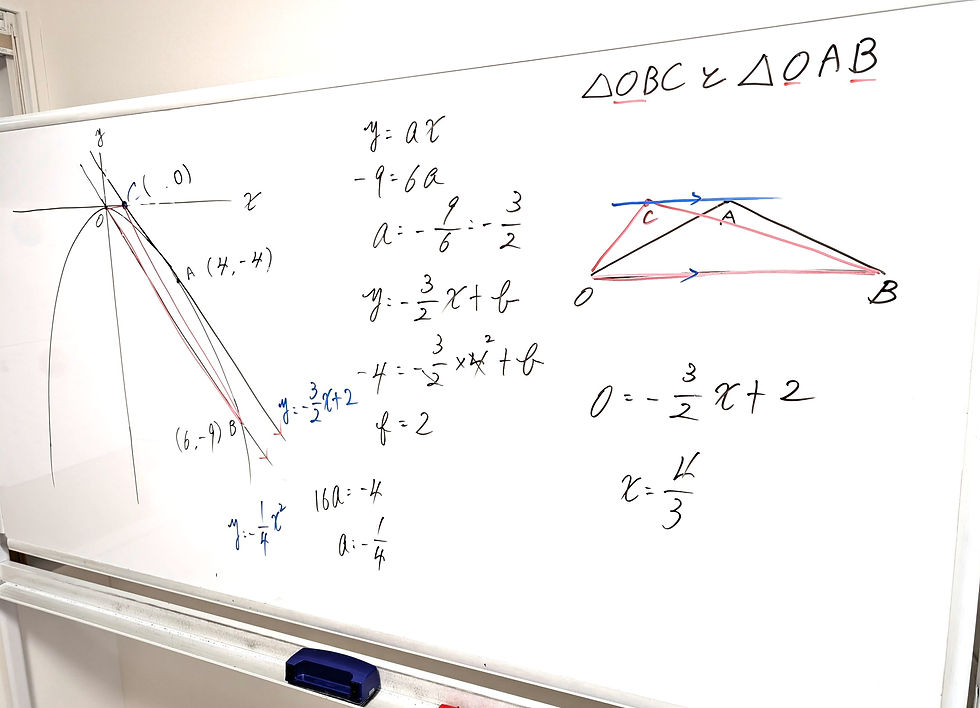 △OBCと△OAB
y
C(  , 0)
x
O
A (4, -4)
(6, -9) B
y=-3/2x+2
y=-1/4x²
y=ax
-9=6a
a=-9/6=-3/2
y=-3/2x+b
-4=-3/2×4²+b
b=2
16a=-4
a=-1/4
C
A
O
B
0=-3/2x+2
x=4/3